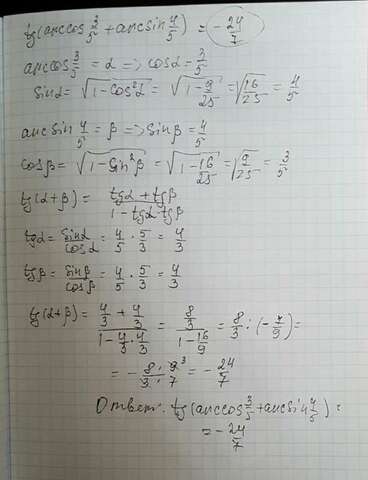 tg(arccos 3/5 + arcsin 4/5) = -24/7
arccos 3/5 = α => cosα = 3/5
sinα = √(1-cos²α) = √(1-9/25) = √(16/25) = 4/5
arcsin 4/5 = β => sinβ = 4/5
cosβ = √(1-sin²β) = √(1-16/25) = √(9/25) = 3/5
tg(α+β) = (tgα + tgβ)/(1-tgα·tgβ)
tgα = sinα/cosα = 4/5 · 5/3 = 4/3
tgβ = sinβ/cosβ = 4/5 · 5/3 = 4/3
tg(α+β) = (4/3 + 4/3)/(1-4/3·4/3) = (8/3)/(1-16/9) = 8/3 : (-7/9) =
= -(8·9³)/(3·7) = -24/7
Ответ: tg(arccos 3/5 + arcsin 4/5) =
= -24/7